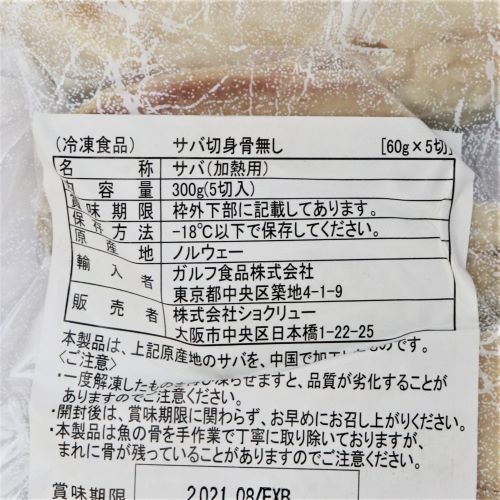 (冷凍食品) サバ切身骨無し [60g×5切]
名称 サバ(加熱用)
内容量 300g(5切入)
賞味期限 枠外下部に記載してあります。
保存方法 -18℃以下で保存してください。
原産地 ノルウェー
輸入者 ガルフ食品株式会社
東京都中央区築地4-1-9
販売者 株式会社ショクリュー
大阪市中央区日本橋1-22-25
本製品は、上記原産地のサバを、中国で加工したものです。
〈ご注意〉
・一度解凍したものを再び凍らせますと、品質が劣化することが
ありますのでご注意ください。
・開封後は、賞味期限に関わらず、お早めにお召し上がりください。
・本製品は魚の骨を手作業で丁寧に取り除いておりますが、
まれに骨が残っていることがありますのでご注意ください。
賞味期限 2021.08/FXB